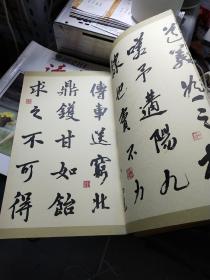 義為之
嗟予遘陽九
隸也實不力
傳車送窮北
鼎鑊甘如飴
求之不可得